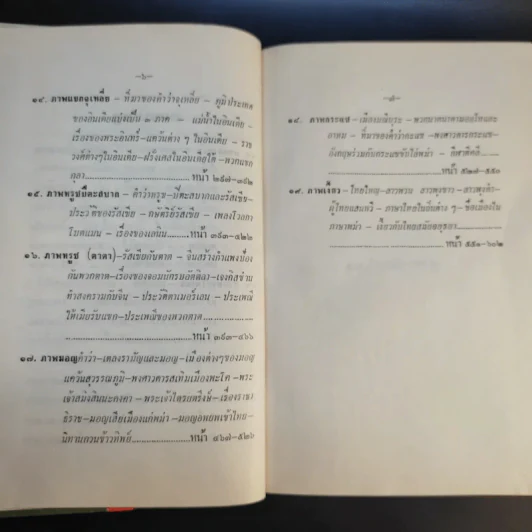 -๖-
๑๔. ภาพแขกจุเหลี่ย - ที่มาของคำว่าจุเหลี่ย - ภูมิประเทศ
ของอินเดียแบ่งเป็น ๓ ภาค - แม่น้ำในอินเดีย -
เรื่องของพระอินทร์ - แคว้นต่าง ๆ ในอินเดีย - ราช
วงศ์ต่างๆ ในอินเดีย - ฝรั่งเศสในอินเดียใต้ - พวกแขก
กุลา ........ หน้า
๑๕. ภาพหรูชปีตะสบาก - คำว่าหรูช - ปีตะสบากและรัสเซีย -
ประวัติของรัสเซีย - ลัทธิขี่รัสเซีย - เพลงโวลกา
โบตแมน - เรื่องของเลนิน ........ หน้า ๓๙๓-๔๒๖
๑๖. ภาพหรูช (ตาตา) - รัสเซียกับตาด - จีนสร้างกำแพงป้อง
กันพวกตาด - เรื่องของจอมจักรพรรดิ - เจงกิสข่าน
ทำสงครามกับจีน - ประวัติตาเมอร์เลน - ประเพณี
ให้เมียรับแขก - ประเพณีของพวกตาด
........ หน้า
๑๗. ภาพมอญ คำว่า - เตลงรามัญและมอญ - เมืองต่างๆของมอญ
แคว้นสุวรรณภูมิ - พงศาวดารสเทิมเมืองพะโค - พระ
เจ้าสมิงสินนะคงคา - พระเจ้าไตรยตรึงษ์ - เรื่องราชา
ธิราช - มอญเสียเมืองแก่พม่า - มอญอพยพเข้าไทย -
นิทานกวนข้าวทิพย์ ........ หน้า ๔๖๗-๕๒๖
-๗-
๑๘. ภาพกระแซ - เมืองมณีปุระ - พวกนาคนาคามอยู่ไหนและ
อาหม - ที่มาของคำว่ากะแซ - พงศาวดารกะแซ -
อังกฤษร่วมกับกระแซขับไล่พม่า - กีฬาตีคลี
........ หน้า ๕๒๗-๕๕๐
๑๙. ภาพเงี้ยว - ไทยใหญ่ - สาวพรหม สาวพุงขาว - สาวพุงดำ -
ผู้ไทยแสนหวี - ภาษาไทยในถิ่นต่าง ๆ - ชื่อเมืองใน
ภาษาพม่า - เงี้ยวกับไทยสมัยอยุธยา
........ หน้า ๕๕๑-๖๐๒